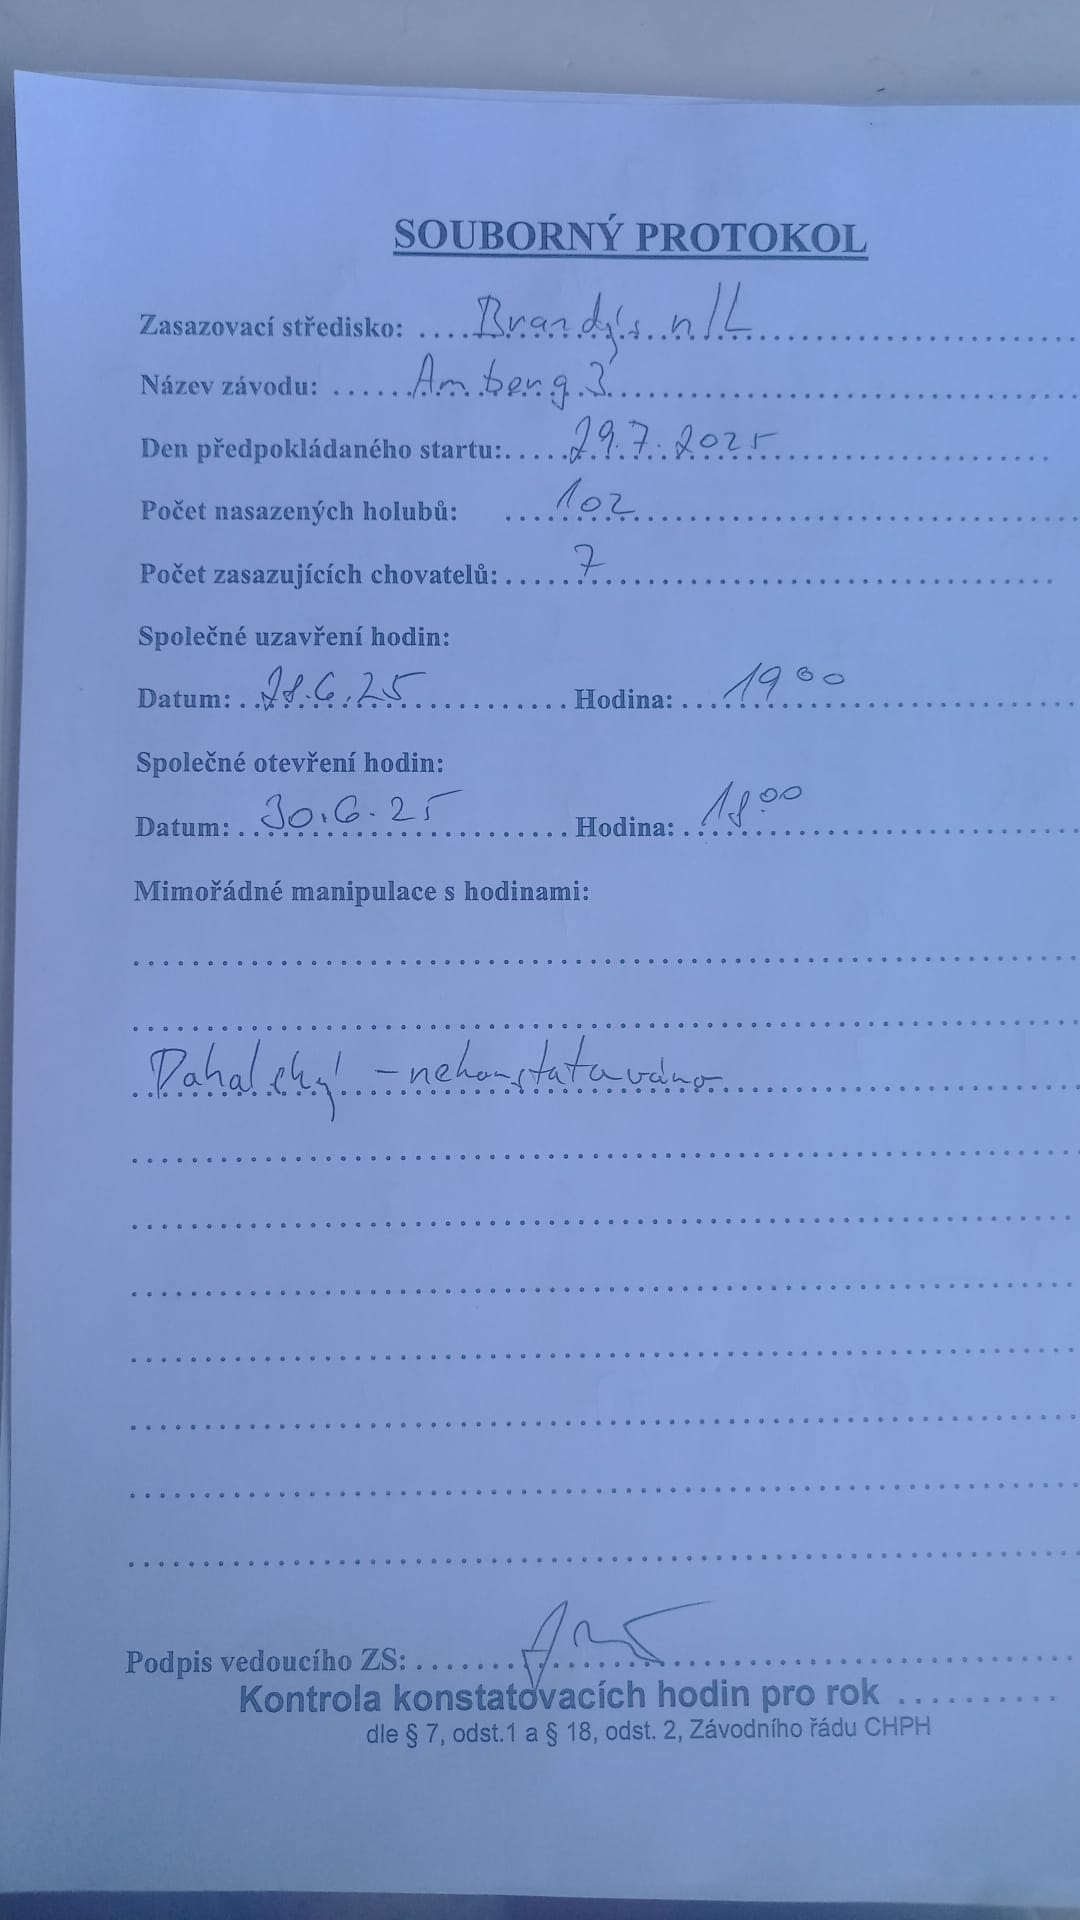 SOUBORNÝ PROTOKOL
Zasazovací středisko: Brandýs n/L
Název závodu: Amberg 3
Den předpokládaného startu: 29.7.2025
Počet nasazených holubů: 102
Počet zasazujících chovatelů: 7
Společné uzavření hodin:
Datum: 28.6.25 Hodina: 19 00
Společné otevření hodin:
Datum: 30.6.25 Hodina: 18 00
Mimořádné manipulace s hodinami:
- nekonstatováno
Podpis vedoucího ZS:
Kontrola konstatovacích hodin pro rok ..........
dle § 7, odst.1 a § 18, odst. 2, Závodního řádu CHPH